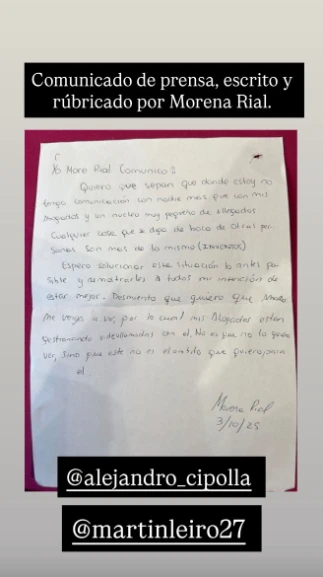 Comunicado de prensa, escrito y
rúbricado por Morena Rial.
Yo More Rial Comunico:
Quiero que sepan que donde estoy no
tengo comunicacion con nadie mas que con mis
abogados y un nucleo muy pequeño de allegados
Cualquier cosa que se diga de boca de otras per
sonas son mas de lo mismo (INVENTADO)
Espero solucionar esta situación lo antes po
sible y demostrarles a todos mi intención de
estar mejor. Desmiento que quiero que
me venga a ver, por lo cual mis Abogados estan
gestionando videollamadas con el. No es que no lo quiera
ver, sino que este no es el ambito que quiero para
el
Morena Rial
3/10/25
@alejandro_cipolla
@martinleiro27